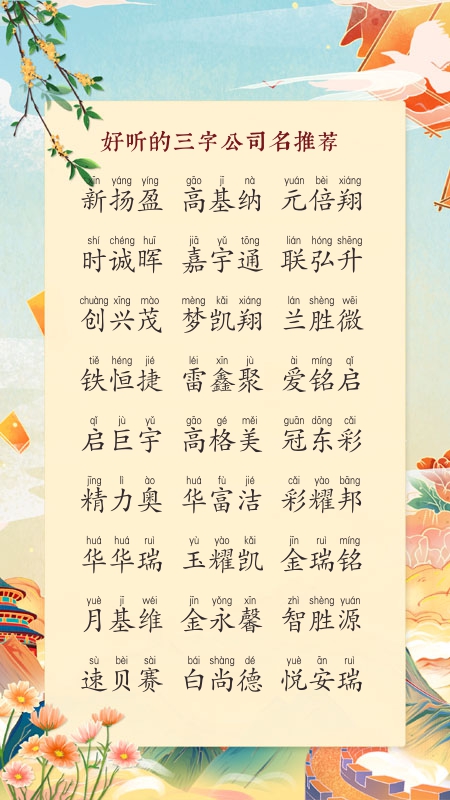 好听的三字公司名推荐
xīn yáng yíng gāo jī nà yuán bèi xiáng
新扬盈 高基纳 元倍翔
shí chéng huī jiā yǔ tōng lián hóng shēng
时诚晖 嘉宇通 联弘升
chuàng xīng mào mèng kǎi xiáng lán shèng wēi
创兴茂 梦凯翔 兰胜微
tiě héng jié léi xīn jù ài míng qǐ
铁恒捷 雷鑫聚 爱铭启
qǐ jù yǔ gāo gé měi guān dōng cǎi
启巨宇 高格美 冠东彩
jīng lì ào huá fù jié cǎi yào bāng
精力奥 华富洁 彩耀邦
huá huá ruì yù yào kǎi jīn ruì míng
华华瑞 玉耀凯 金瑞铭
yuè jī wéi jīn yǒng xīn zhì shèng yuán
月基维 金永馨 智胜源
sù bèi sài bái shàng dé yuè ān ruì
速贝赛 白尚德 悦安瑞